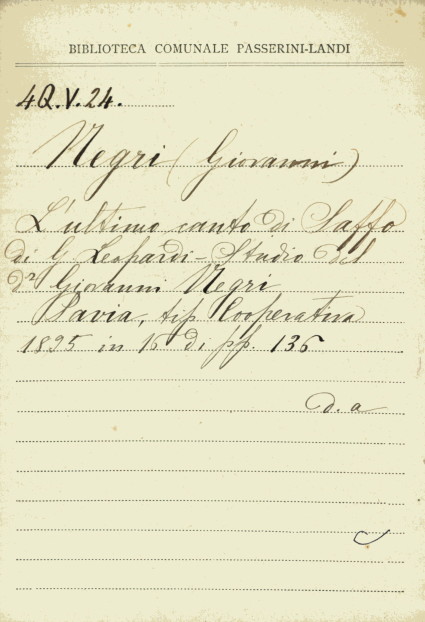 BIBLIOTECA COMUNALE PASSERINI-LANDI
4Q.V.24.
Negri (Giovanni)
L'ultimo canto di Saffo
di G Leopardi - Studio del
dr Giovanni Negri
Pavia, tip Cooperativa
1895 in 16 di pp. 136
d. a